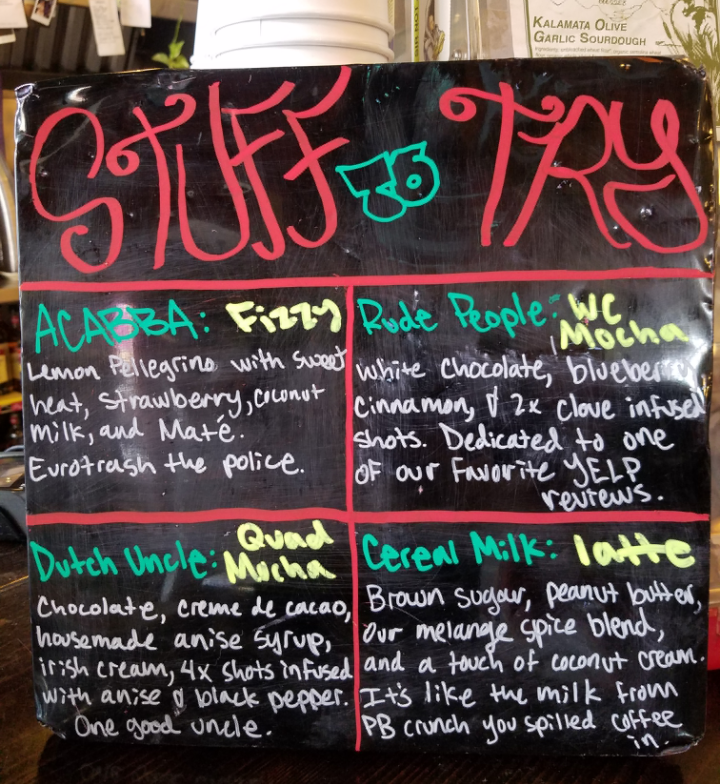 KALAMATA OLIVE
GARLIC SOURDOUGH
STUFF TO TRY
ACABBA: Fizzy
Lemon Pellegrino with sweet
heat, strawberry, coconut
milk, and Maté.
Eurotrash the police.
Rude People: WC
Mocha
White chocolate, blueberry
cinnamon, & 2x clove infused
shots. Dedicated to one
of our favorite YELP
reviews.
Dutch Uncle: Quad
Mocha
Chocolate, creme de cacao,
housemade anise syrup,
irish cream, 4x shots infused
with anise & black pepper.
One good uncle.
Cereal Milk: latte
Brown sugar, peanut butter,
our melange spice blend,
and a touch of coconut cream.
It's like the milk from
PB crunch you spilled coffee
in.